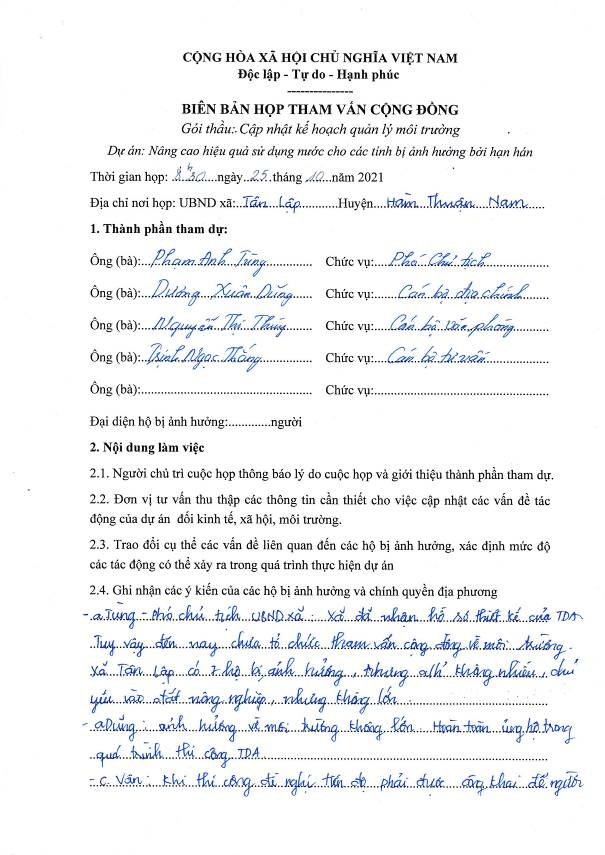 CỘNG HÒA XÃ HỘI CHỦ NGHĨA VIỆT NAM
Độc lập - Tự do - Hạnh phúc
---------------
BIÊN BẢN HỌP THAM VẤN CỘNG ĐỒNG
Gói thầu: Cập nhật kế hoạch quản lý môi trường
Dự án: Nâng cao hiệu quả sử dụng nước cho các tỉnh bị ảnh hưởng bởi hạn hán
Thời gian họp: 8h30 ngày 25 tháng 10 năm 2021
Địa chỉ nơi họp: UBND xã: Tân Lập Huyện Hàm Thuận Nam
1. Thành phần tham dự:
Ông (bà): Phạm Anh Tùng Chức vụ: Phó Chủ tịch
Ông (bà): Dương Xuân Dũng Chức vụ: Cán bộ địa chính
Ông (bà): Nguyễn Thị Thúy Chức vụ: Cán bộ văn phòng
Ông (bà): Trịnh Ngọc Thắng Chức vụ: Cán bộ tư vấn
Ông (bà): Chức vụ:
Đại diện hộ bị ảnh hưởng: người
2. Nội dung làm việc
2.1. Người chủ trì cuộc họp thông báo lý do cuộc họp và giới thiệu thành phần tham dự.
2.2. Đơn vị tư vấn thu thập các thông tin cần thiết cho việc cập nhật các vấn đề tác
động của dự án đối kinh tế, xã hội, môi trường.
2.3. Trao đổi cụ thể các vấn đề liên quan đến các hộ bị ảnh hưởng, xác định mức độ
các tác động có thể xảy ra trong quá trình thực hiện dự án
2.4. Ghi nhận các ý kiến của các hộ bị ảnh hưởng và chính quyền địa phương
- a.Tùng - Phó chủ tịch UBND xã: Xã đã nhận hồ sơ thiết kế của TDA
Tuy vậy đến nay chưa tổ chức tham vấn cộng đồng về môi trường.
Xã Tân Lập có 7 hộ bị ảnh hưởng, nhưng a/h không nhiều, chủ
yếu vào đất nông nghiệp, nhưng không lớn.
- a.Dũng: ảnh hưởng về môi trường không lớn. Hoàn toàn ủng hộ trong
quá trình thi công TDA
- c. Vân: Khi thi công đề nghị tiến độ phải được công khai để người